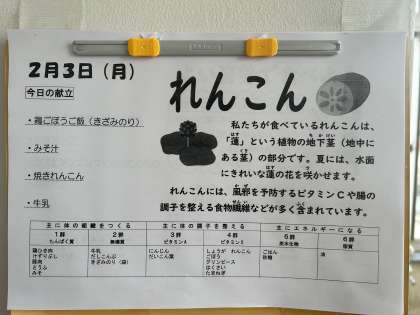 2月3日（月）
今日の献立
・鶏ごぼうご飯（きざみのり）
・みそ汁
・焼きれんこん
・牛乳
れんこん
私たちが食べているれんこんは、
「蓮」という植物の地下茎（地中に
ある茎）の部分です。夏には、水面
にきれいな蓮の花を咲かせます。
れんこんには、風邪を予防するビタミンCや腸の
調子を整える食物繊維などが多く含まれています。
主に体の組織をつくる 主に体の調子を整える 主にエネルギーになる
1群 2群 3群 4群 5群 6群
たんぱく質 無機質 ビタミンA ビタミンC 炭水化物 脂質
鶏ひき肉 牛乳 にんじん しょうが れんこん ごはん 油
けずりぶし だしこんぶ だいこん葉 ごぼう 砂糖
豚肉 きざみのり（袋） グリンピース
とうふ はくさい
みそ たまねぎ